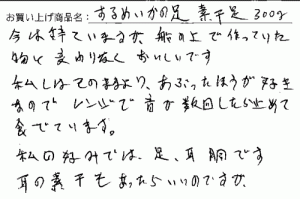 お買い上げ商品名: するめいかの足 素干足 300g
今は待ていますが、船の上で作っていた
物と変わりなく おいしいです
私しはそのままより、あぶったほうが好き
なので レンジで音が数回したら止めて
食べています。
私の好みでは、足、耳、胴です
耳の素干もあったらいいのですが、